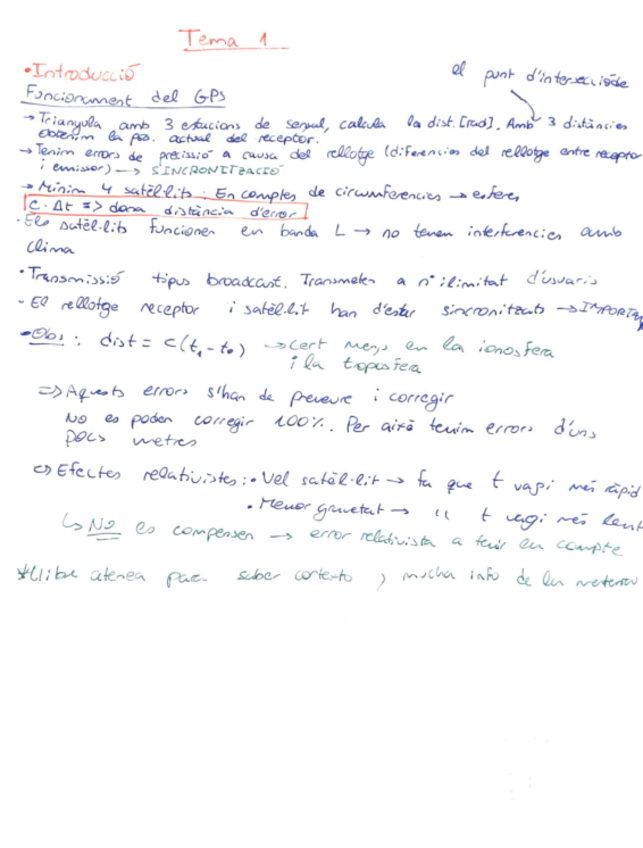 Tema 1
•Introducció
el punt d'intersecció de
Funcionament del GPS
→ Triangula amb 3 estacions de senyal, calcula la dist. [rad]. Amb 3 distàncies
obtenim la pos. actual del receptor.
→ Tenim errors de precissió a causa del rellotge (diferencies del rellotge entre receptor
i emissor) → SINCRONITZACIÓ
→ Mínim 4 satèl·lits. En comptes de circumferencies → esferes
C·Δt => dona distància d'error
· Els satèl·lits funcionen en banda L → no tenen interferencies amb
clima
•Transmissió tipus broadcast. Transmeten a nº ilimitat d'usuaris
- El rellotge receptor i satèl·lit han d'estar sincronitzats → IMPORTAN
•Obs: dist = c(t₁ - t₀) → cert menys en la ionosfera
i la troposfera
=> Aquests errors s'han de preveure i corregir
No es poden corregir 100%. Per això tenim errors d'uns
pocs metres
=> Efectes relativistes: • Vel satèl·lit → fa que t vagi més ràpid
• Menor gravetat → " t vagi més lent
↳ No es compensen → error relativista a tenir en compte
*Llibre atenea para saber contexto y mucha info de la